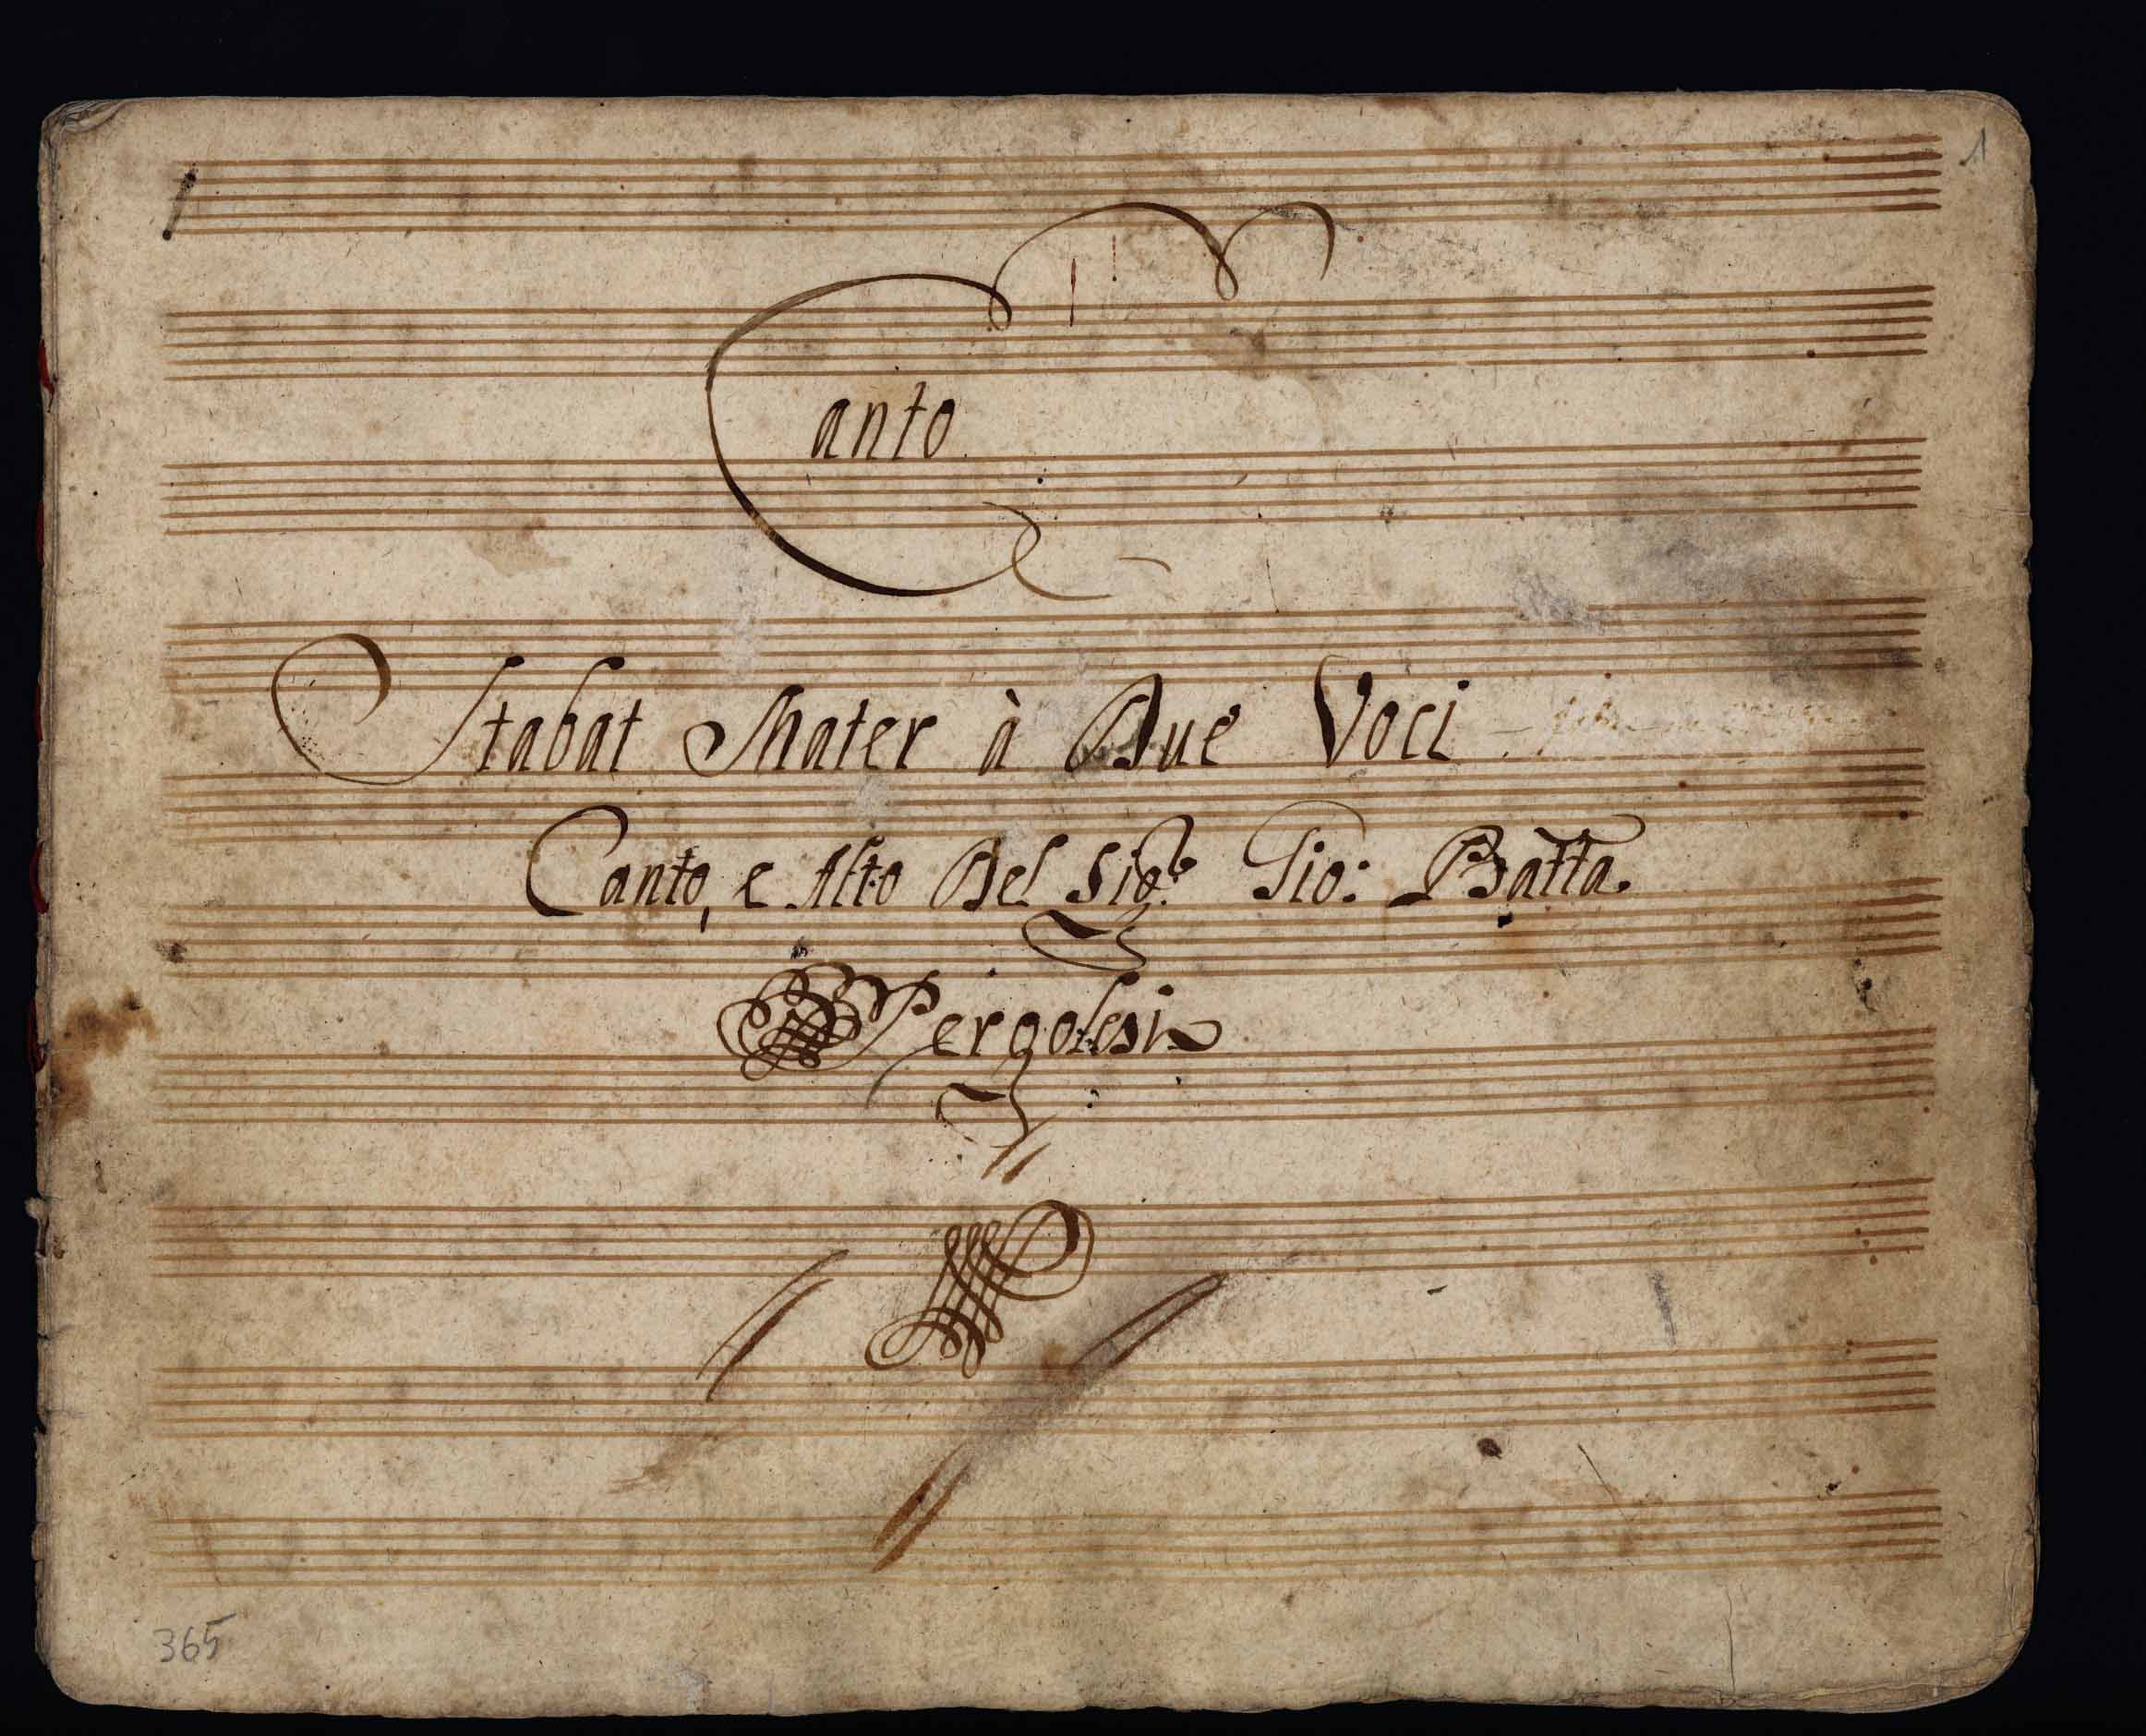 1
Canto
Stabat Mater à Due Voci
Canto, e Alto Del Sig.r Gio: Batta.
Pergolesi
365